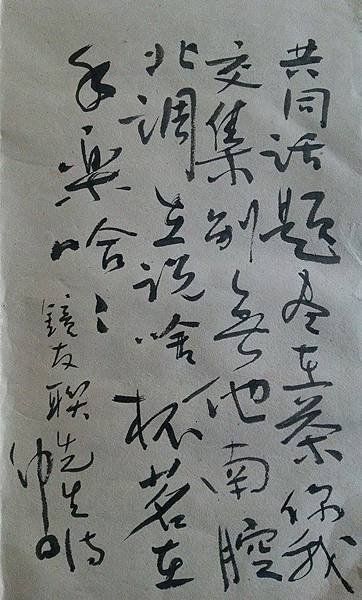 共同话题尽在茶你我
交集别无他南腔
北调且说啥杯茗在
手乐哈哈
镜友联先生诗